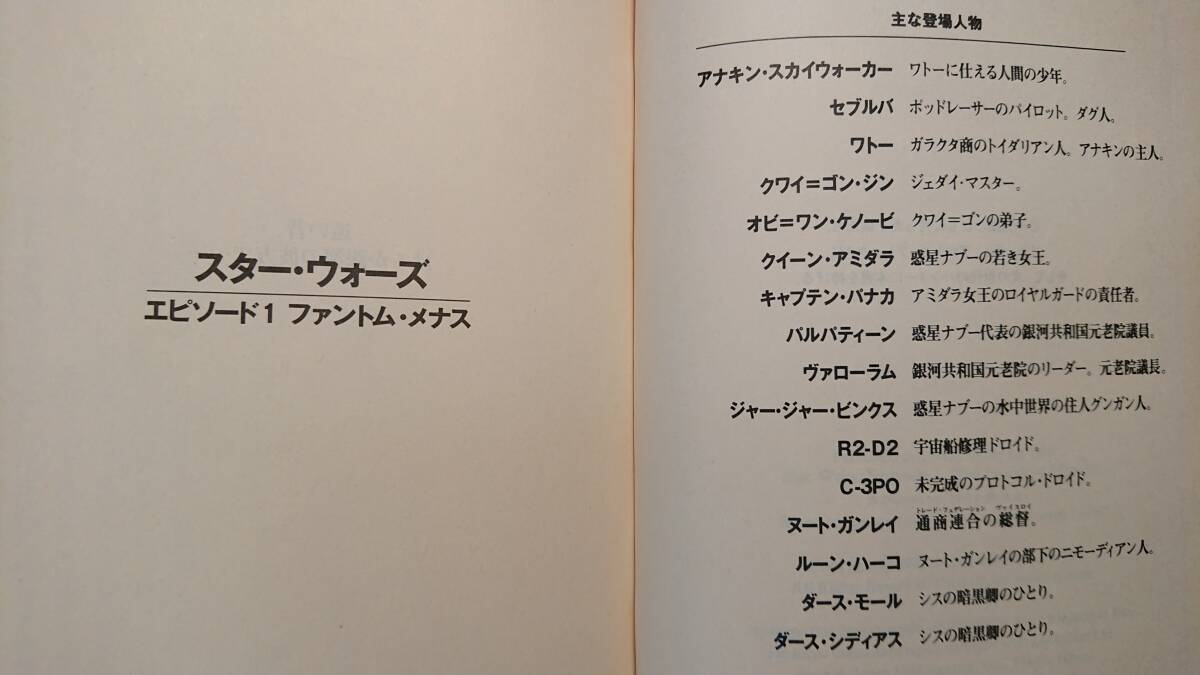 スター・ウォーズ
エピソード1 ファントム・メナス
主な登場人物
アナキン・スカイウォーカー ワトーに仕える人間の少年。
セブルバ ポッドレーサーのパイロット。ダグ人。
ワトー ガラクタ商のトイダリアン人。アナキンの主人。
クワイ=ゴン・ジン ジェダイ・マスター。
オビ=ワン・ケノービ クワイ=ゴンの弟子。
クイーン・アミダラ 惑星ナブーの若き女王。
キャプテン・パナカ アミダラ女王のロイヤルガードの責任者。
パルパティーン 惑星ナブー代表の銀河共和国元老院議員。
ヴァローラム 銀河共和国元老院のリーダー。元老院議長。
ジャー・ジャー・ビンクス 惑星ナブーの水中世界の住人グンガン人。
R2-D2 宇宙船修理ドロイド。
C-3PO 未完成のプロトコル・ドロイド。
トレード・フェデレーション ヴァイスロイ
ヌート・ガンレイ 通商連合の総督。
ルーン・ハーコ ヌート・ガンレイの部下のニモーディアン人。
ダース・モール シスの暗黒卿のひとり。
ダース・シディアス シスの暗黒卿のひとり。